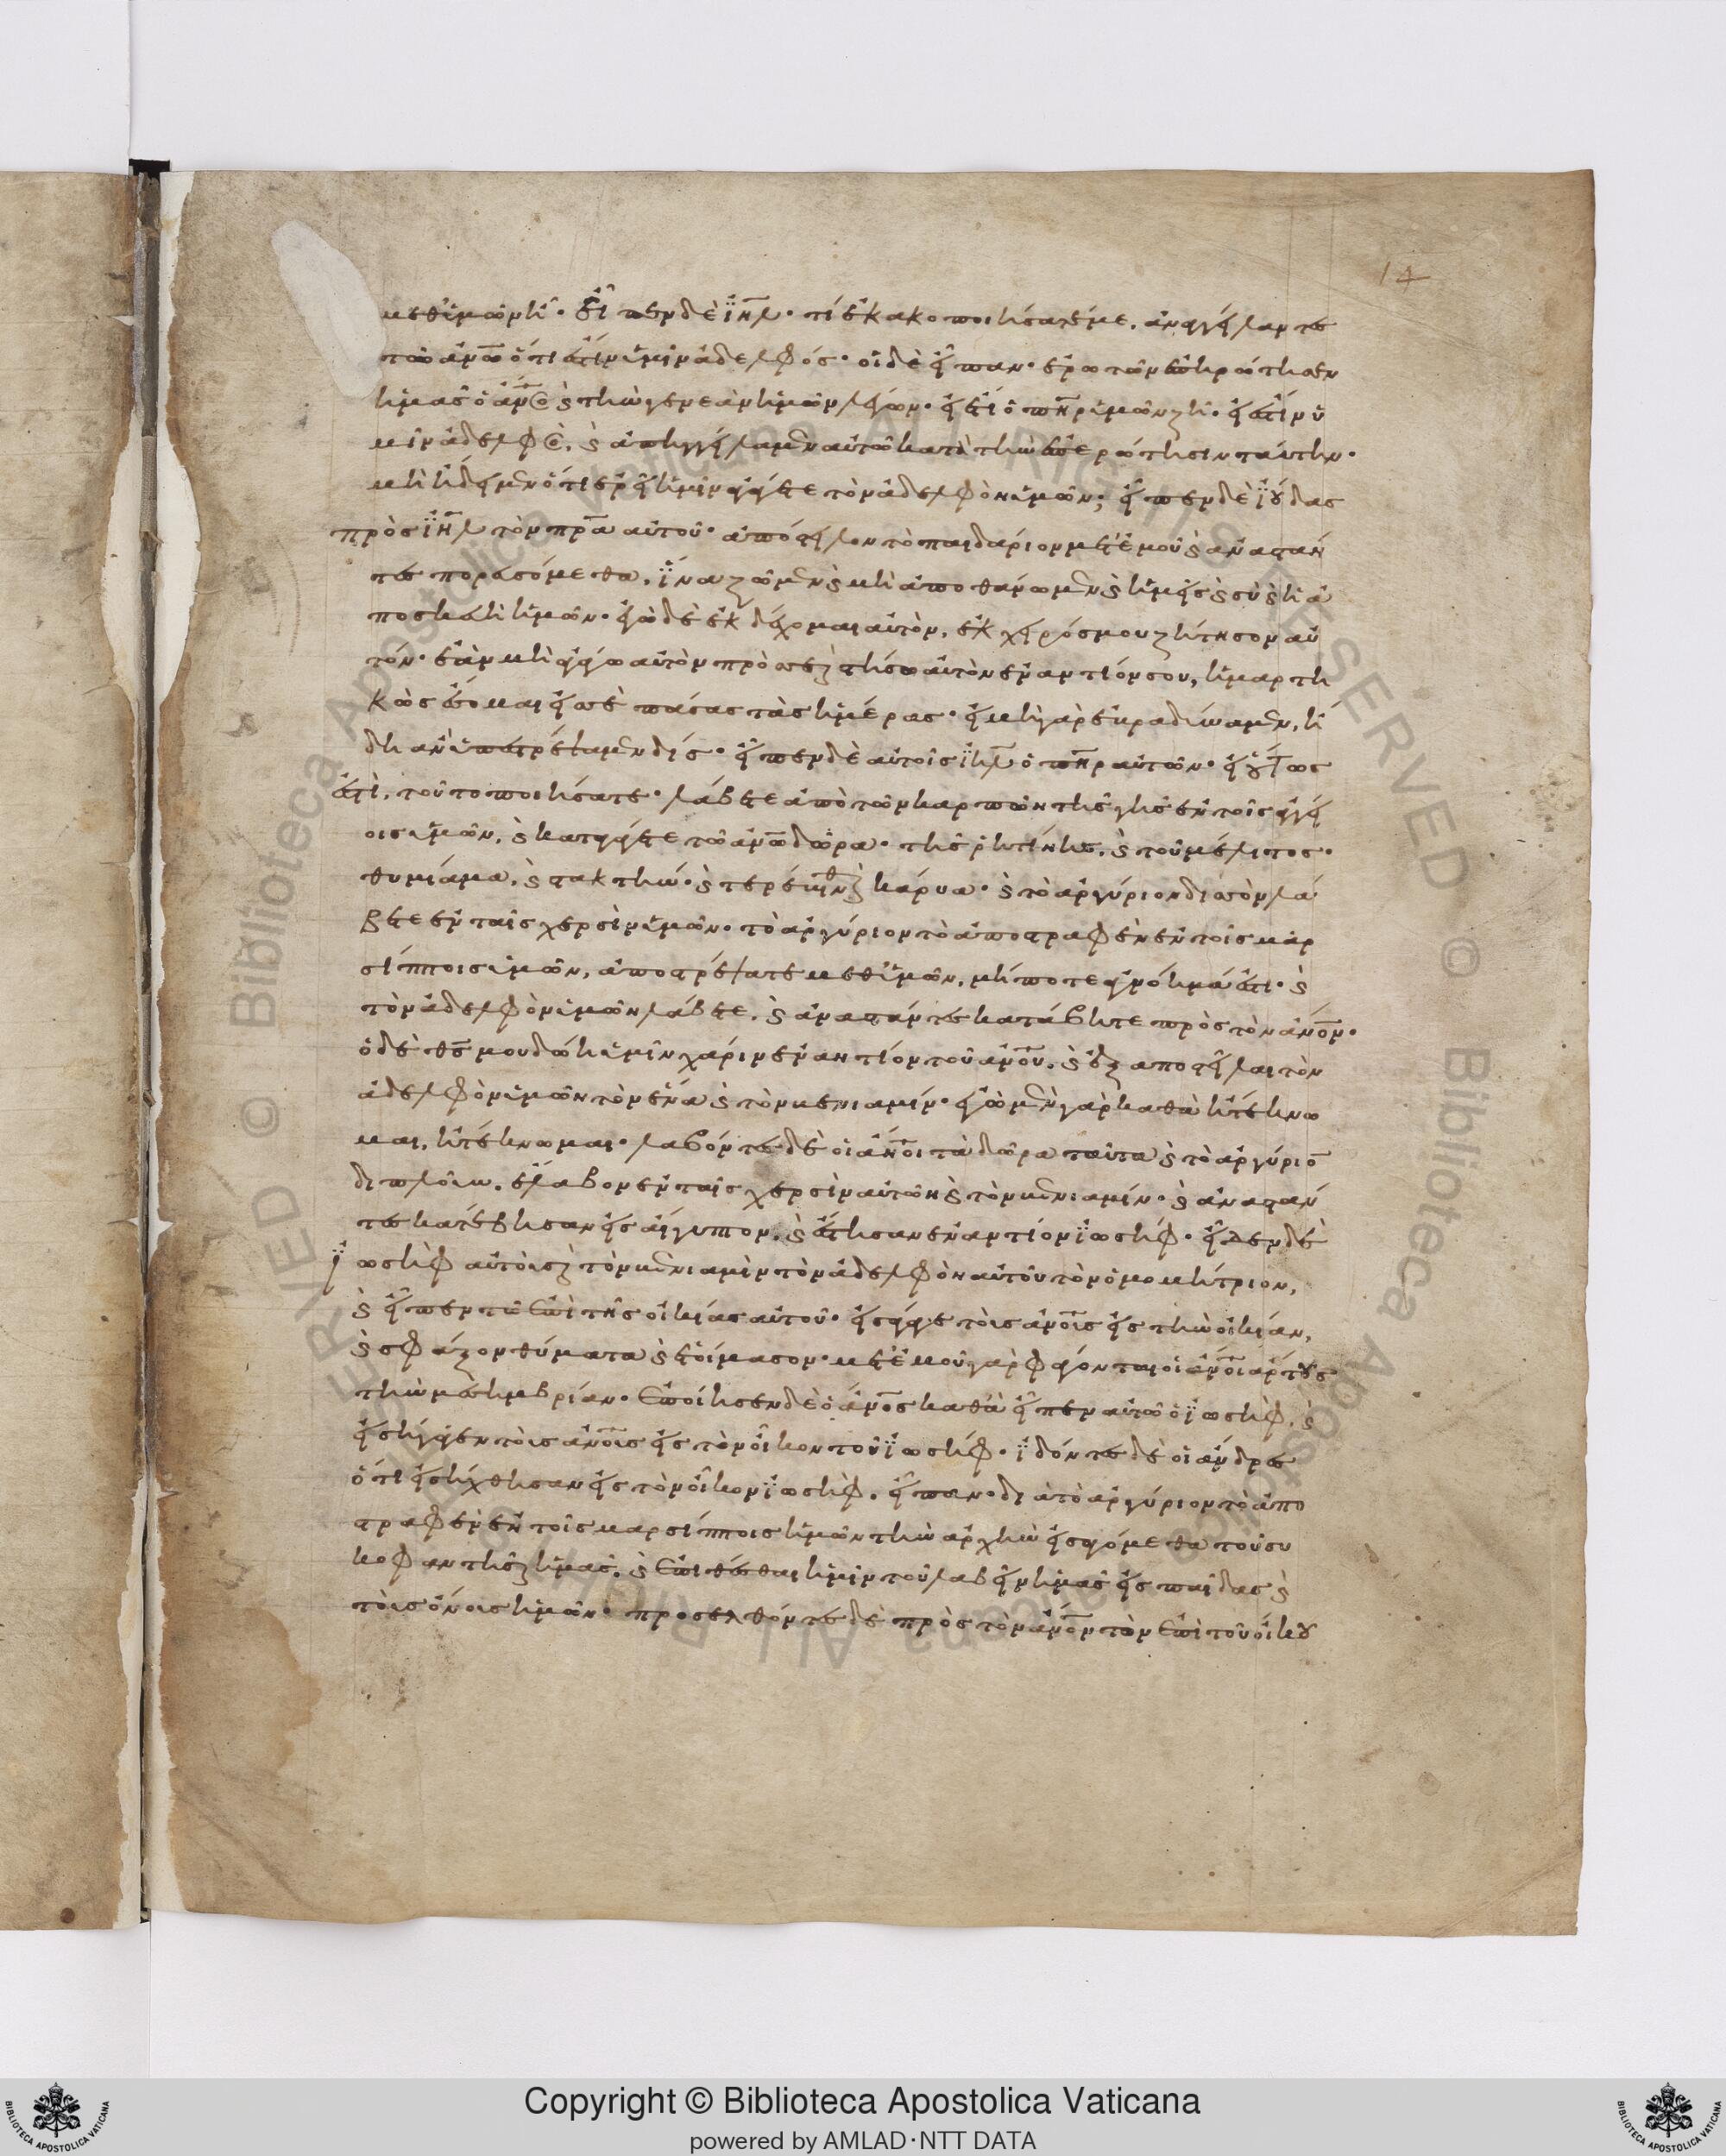 14
μεθ' ὑμῶν ᾖ· εἶπεν δὲ ἰηλ· τί ἐκακοποιήσατέ με, ἀναγγείλαντες
τῶ ἀνω ὅτι ἐστὶν ὑμῖν ἀδελφός· οἱ δὲ εἶπαν· ἐρωτῶν ἐπηρώτησεν
ἡμᾶς ὁ ἄνος καὶ τὴν γενεὰν ἡμῶν λέγων· εἰ ἔτι ὁ πηρ ὑμῶν ζῆ· εἰ ἔστιν ὑ
μῖν ἀδελφὸς, καὶ ἀπηγγείλαμεν αὐτῶ κατὰ τὴν ἐπερώτησιν ταύτην·
μὴ ἤδειμεν ὅτι ἐρεῖ ἡμῖν ἀγάγετε τὸν ἀδελφὸν ὑμῶν; εἶπεν δὲ ἰούδας
πρὸς ἰηλ τὸν πρα αὐτοῦ· ἀπόστειλον τὸ παιδάριον μετ' ἐμοῦ καὶ ἀναστάν
τες πορευσόμεθα, ἵνα ζῶμεν καὶ μὴ ἀποθάνωμεν καὶ ἡμεῖς καὶ σὺ καὶ ἡ ἀ
ποσκευὴ ἡμῶν· ἐγὼ δὲ ἐκδέχομαι αὐτὸν, ἐκ χειρός μου ζήτησον αὐ
τόν· ἐὰν μὴ ἀγάγω αὐτὸν πρὸς σὲ καὶ στήσω αὐτὸν ἐναντίον σου, ἡμαρτη
κὼς ἔσομαι εἰς σὲ πάσας τὰς ἡμέρας· εἰ μὴ γὰρ ἐβραδύναμεν, ἤ
δη ἂν ὑπεστρέψαμεν δίς· εἶπεν δὲ αὐτοῖς ἰηλ ὁ πηρ αὐτῶν· εἰ οὕτως
ἐστὶ, τοῦτο ποιήσατε· λάβετε ἀπὸ τῶν καρπῶν τῆς γῆς ἐν τοῖς ἀγγεί
οις ὑμῶν, καὶ καταγάγετε τῶ ἀνω δῶρα· τῆς ῥητίνης, καὶ τοῦ μέλιτος·
θυμίαμα, καὶ στακτὴν· καὶ τερέμινθον καὶ κάρυα· καὶ τὸ ἀργύριον δισσὸν λά
βετε ἐν ταῖς χερσὶν ὑμῶν· τὸ ἀργύριον τὸ ἀποστραφὲν ἐν τοῖς μαρ
σίπποις ὑμῶν, ἀποστρέψατε μεθ' ὑμῶν, μή ποτε ἀγνόημά ἐστι· καὶ
τὸν ἀδελφὸν ὑμῶν λάβετε, καὶ ἀναστάντες κατάβητε πρὸς τὸν ἄνον·
ὁ δὲ θς μου δώη ὑμῖν χάριν ἐναντίον τοῦ ἀνου, καὶ ἀποστεῖλαι τὸν
ἀδελφὸν ὑμῶν τὸν ἕνα καὶ τὸν βενιαμίν· ἐγὼ μὲν γὰρ καθὰ ἠτέκνω
μαι, ἠτέκνωμαι· λαβόντες δὲ οἱ ἄνοι τὰ δῶρα ταῦτα καὶ τὸ ἀργύριον
διπλοῦν, ἔλαβον ἐν ταῖς χερσὶν αὐτῶν καὶ τὸν βενιαμίν· καὶ ἀναστάν
τες κατέβησαν εἰς αἴγυπτον, καὶ ἔστησαν ἐναντίον ἰωσήφ· εἶδεν δὲ
ἰωσὴφ αὐτοὺς καὶ τὸν βενιαμὶν τὸν ἀδελφὸν αὐτοῦ τὸν ὁμομήτριον,
καὶ εἶπεν τῶ ἐπὶ τῆς οἰκίας αὐτοῦ· εἰσάγαγε τοὺς ἀνους εἰς τὴν οἰκίαν,
καὶ σφάξον θύματα καὶ ἑτοίμασον· μετ' ἐμοῦ γὰρ φάγονται οἱ ἄνοι ἄρτους
τὴν μεσημβρίαν· ἐποίησεν δὲ ὁ ἄνος καθὰ εἶπεν αὐτῶ ὁ ἰωσὴφ, καὶ
εἰσήγαγεν τοὺς ἀνους εἰς τὸν οἶκον τοῦ ἰωσήφ· ἰδόντες δὲ οἱ ἄνδρες
ὅτι εἰσήχθησαν εἰς τὸν οἶκον ἰωσὴφ, εἶπαν· διὰ τὸ ἀργύριον τὸ ἀπο
στραφὲν ἐν τοῖς μαρσίπποις ἡμῶν τὴν ἀρχὴν εἰσαγόμεθα τοῦ συ
κοφαντῆσαι ἡμᾶς, καὶ ἐπιθέσθαι ἡμῖν τοῦ λαβεῖν ἡμᾶς εἰς παῖδας καὶ
τοὺς ὄνους ἡμῶν· προσελθόντες δὲ πρὸς τὸν ἄνον τὸν ἐπὶ τοῦ οἴκου
Copyright © Biblioteca Apostolica Vaticana
powered by AMLAD·NTT DATA